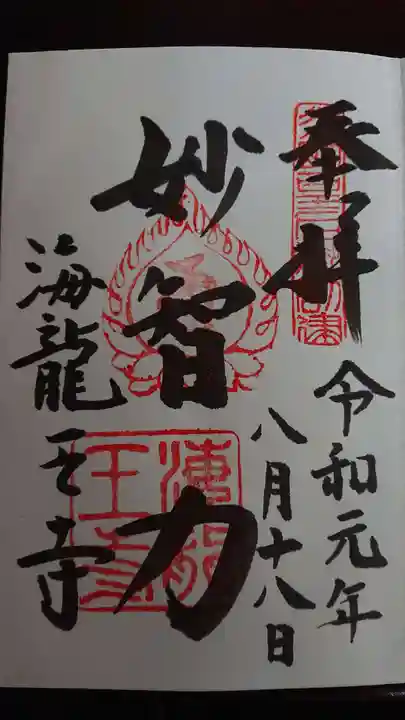 奉拝
令和元年
八月十八日
妙智力
海龍王寺